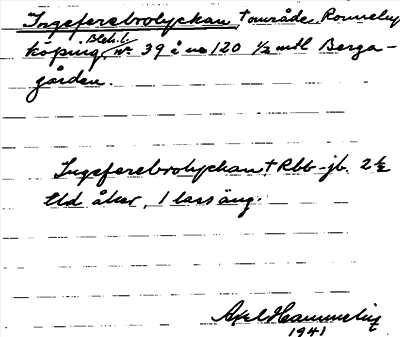 Ingeferebrolyckan † område, Ronneby
Blek. l.
köping, nr. 39 å nr 120 1/2 mtl Berga-
gården.
Ingeferebrolyckan † Rbb-jb. 2 1/2
tld åker, 1 lass äng.
Axel Hammerling
1941